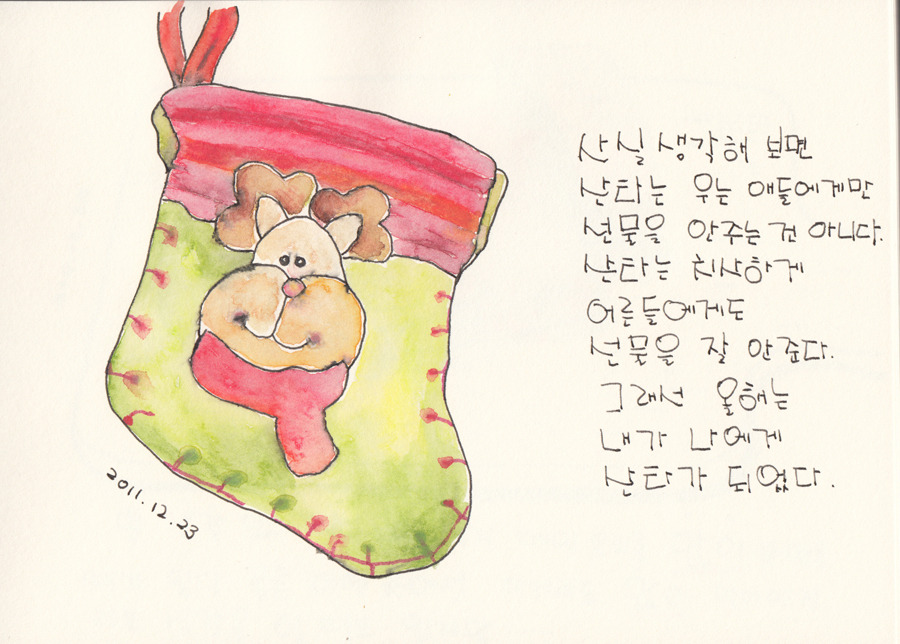 사실 생각해 보면
산타는 우는 애들에게만
선물을 안주는건 아니다.
산타는 치사하게
어른들에게도
선물을 잘 안준다.
그래서 올해는
내가 나에게
산타가 되었다.
2011.12.23